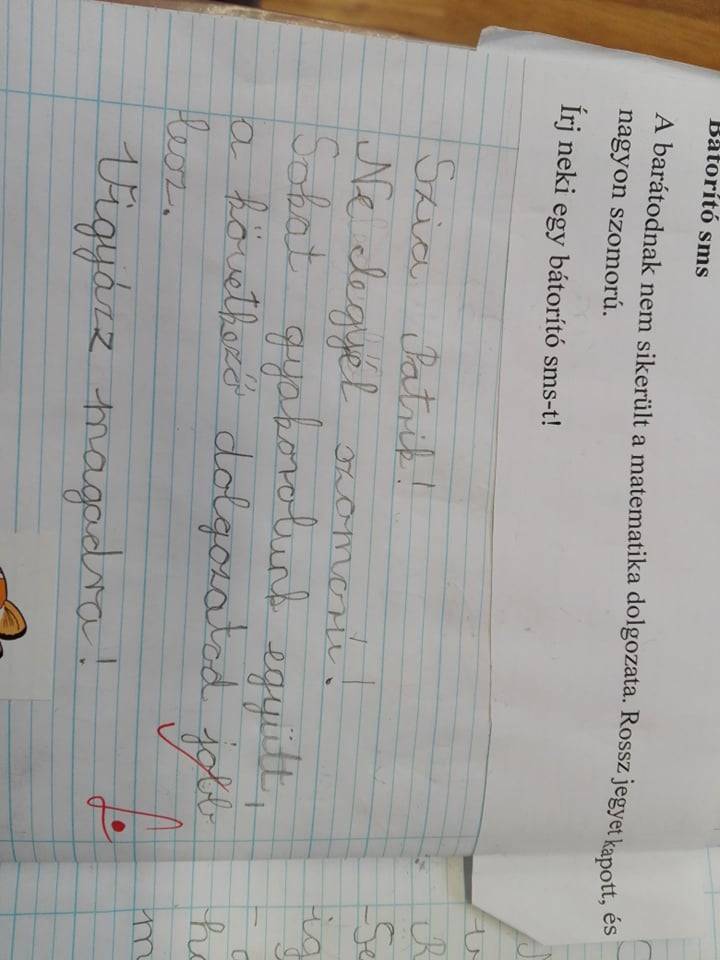 Bátorító sms
A barátodnak nem sikerült a matematika dolgozata. Rossz jegyet kapott, és
nagyon szomorú.
Írj neki egy bátorító sms-t!
Szia Patrik!
Ne legyél szomorú!
Sokat gyakorolunk együtt,
a következő dolgozatod jobb
lesz.
Vigyázz magadra!